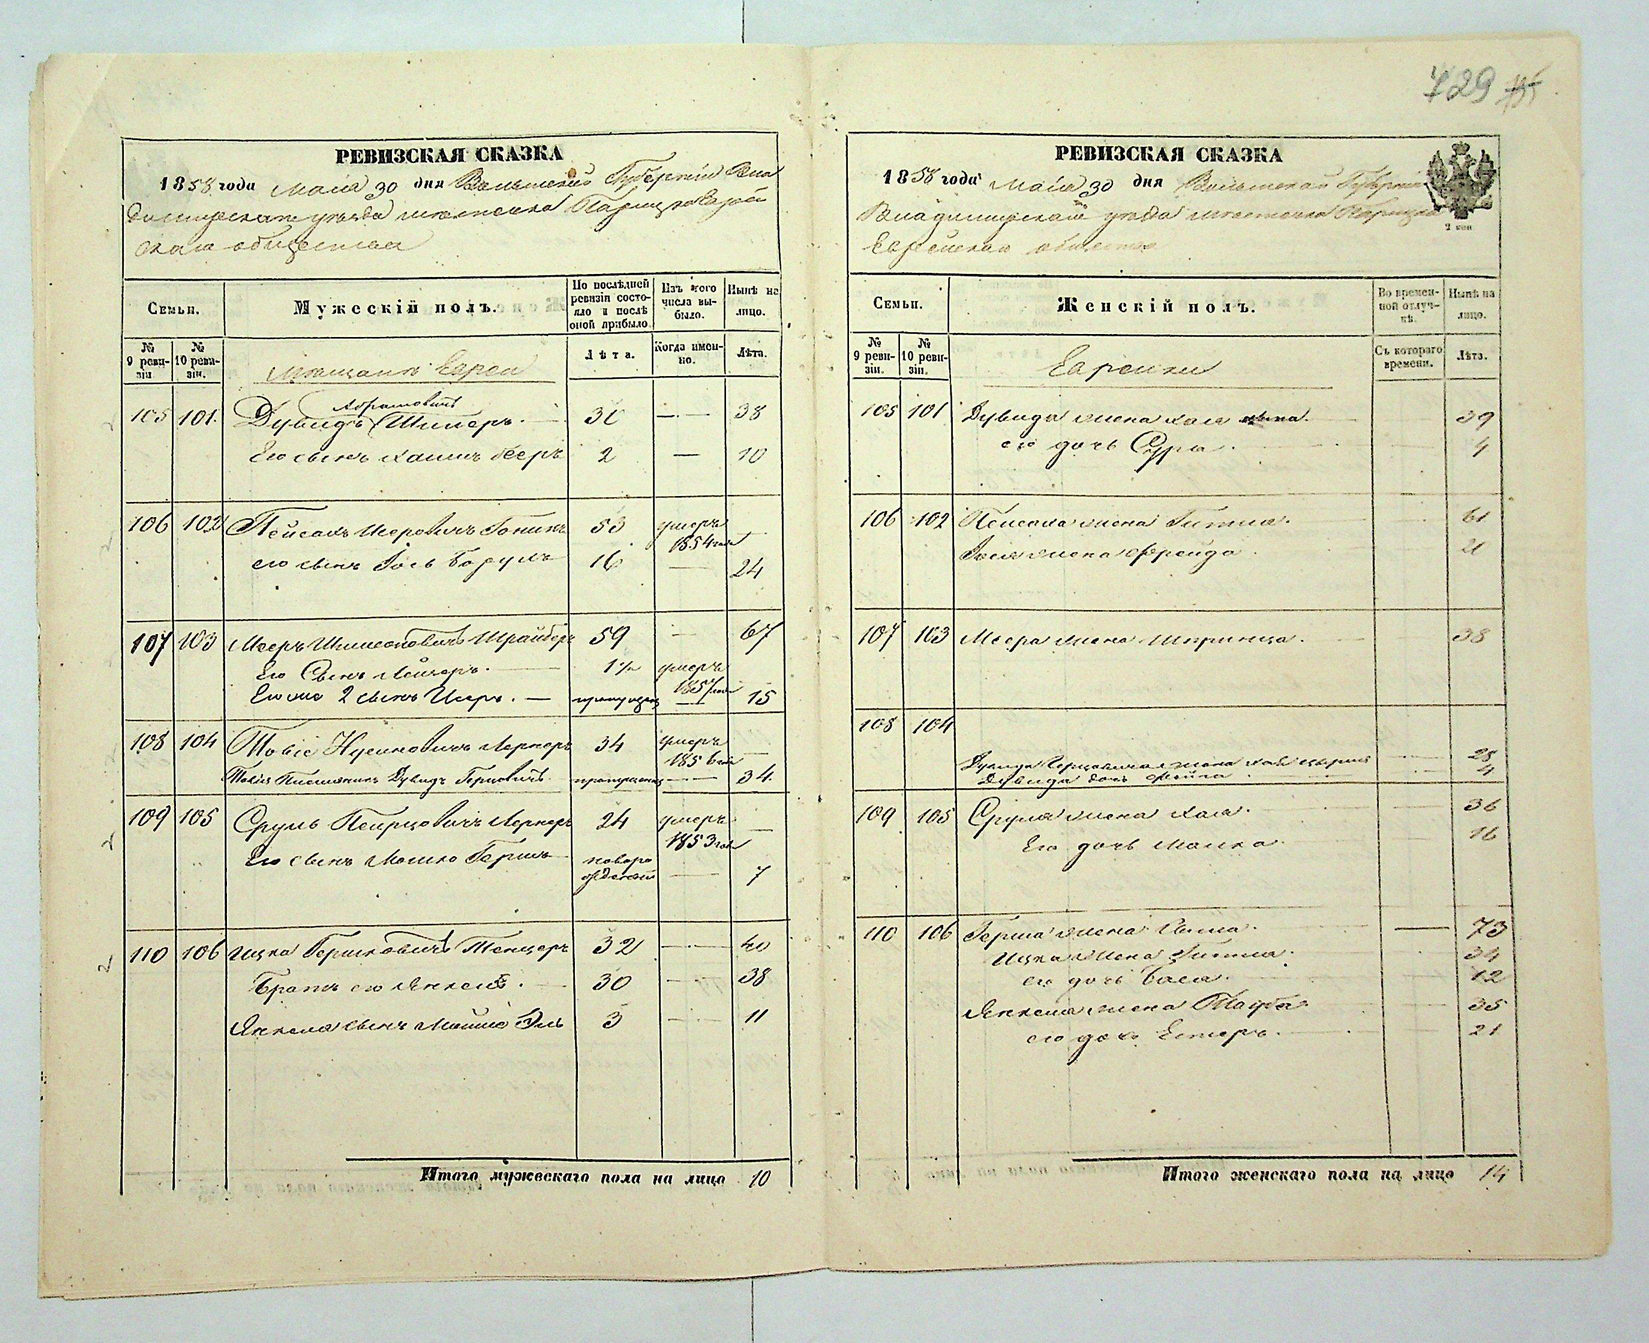 729
РЕВИЗСКАЯ СКАЗКА
1858 года Мая 30 дня Волынской Губерніи Вла
димирскаго уѣзда местечка Еврей
скаго общества
Семьи.
Мужескій полъ.
По послѣдней ревизіи состояло и послѣ оной прибыло
Изъ того числа выбыло.
Нынѣ на лицо.
№ 9 ревизіи.
№ 10 ревизіи.
Мѣщане Евреи
Лѣта.
Когда именно.
Лѣта.
Абрамовичъ
105 101. Дувидъ Шпиеръ. 30 — 38
Его сынъ Хаимъ Беръ 2 — 10
106 102 Пейсахъ Іось 53 умеръ 1854 года
его сынъ Іось Борухъ 16 — 24
107 103 Мееръ Шрайберъ 59 — 67
Его Сынъ Лейзеръ. 1 1/2 умеръ 1857 года
Его же 2 сынъ Исеръ. — пропущенъ — 15
108 104 Товіе Нусиновичъ Лернеръ 34 умеръ 1856 года
Товія Племянникъ Дувидъ Герцовичъ. пропущенъ — 34
109 105 Сруль Лернеръ 24 умеръ 1853 года
Его сынъ Мошко Гершъ новорожденный — 7
110 106 Ицка Гершковичъ Тенцеръ 32 — 40
Братъ его Янкель. 30 — 38
Янкеля сынъ Мойше Эль 3 — 11
Итого мужескаго пола на лицо 10
РЕВИЗСКАЯ СКАЗКА
1858 года Мая 30 дня Волынской Губерніи
Владимирскаго уѣзда местечка
Еврейскаго общества
2 коп
Семьи.
Женскій полъ.
Во временной отлучкѣ.
Нынѣ на лицо.
№ 9 ревизіи.
№ 10 ревизіи.
Еврейки
Съ котораго времени.
Лѣта.
105 101 Дувида жена Хая 39
его дочь Сура. 4
106 102 Пейсаха жена Гитля. 61
Іося жена Фрейда. 21
107 103 Меера жена Шпринца. 38
108 104
Дувида Герцовича жена Хая 28
Дувида дочь 4
109 105 Сруля жена Хая. 36
Его дочь Малка. 16
110 106 Герша жена 73
Ицка жена Гитля. 34
его дочь Бася. 12
Янкеля жена Тауба 35
его дочь Естеръ. 21
Итого женскаго пола на лицо 14